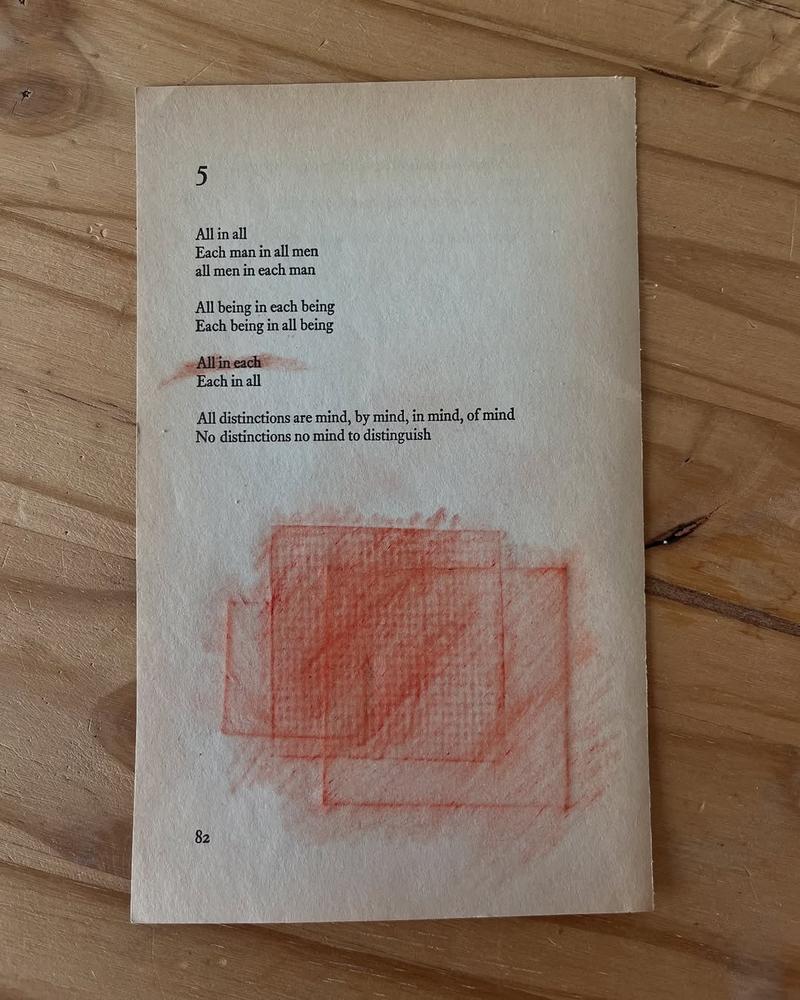 5
All in all
Each man in all men
all men in each man
All being in each being
Each being in all being
All in each
Each in all
All distinctions are mind, by mind, in mind, of mind
No distinctions no mind to distinguish
82